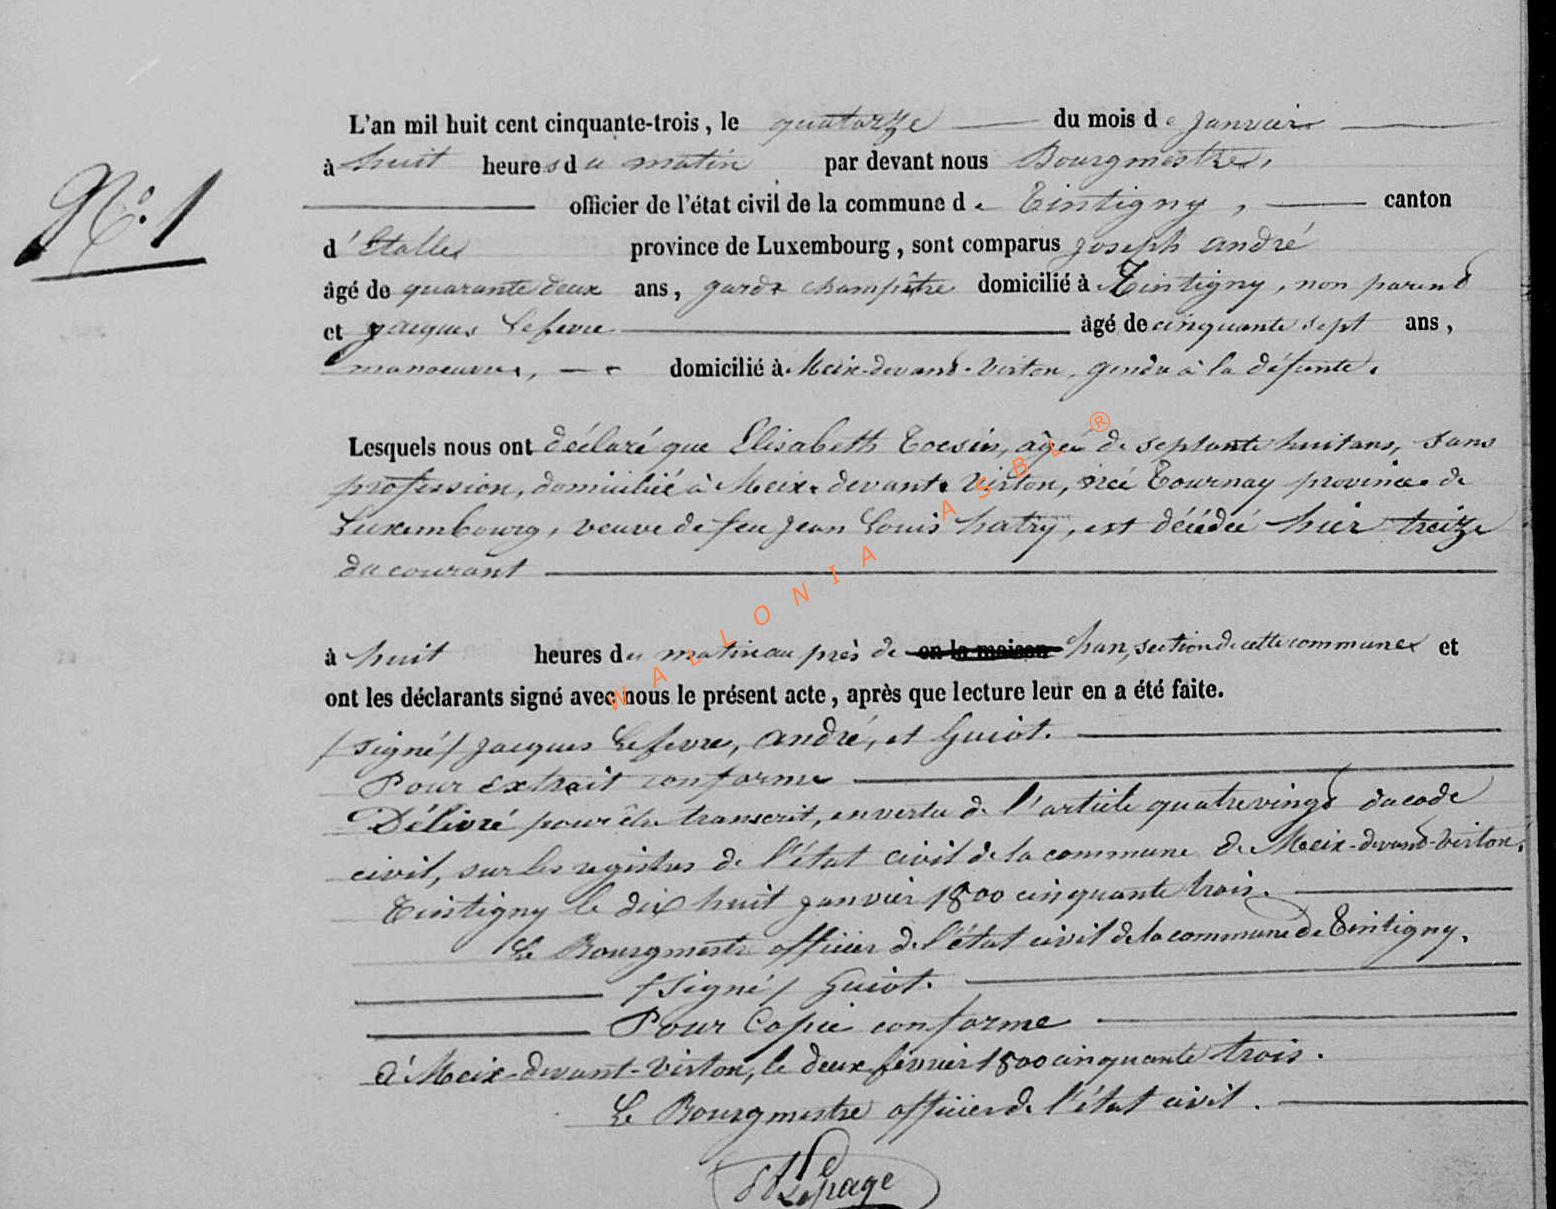 L'an mil huit cent cinquante-trois, le quatorze du mois de Janvier
à huit heures du matin par devant nous Bourgmestre,
officier de l'état civil de la commune de Tintigny, canton
d'Etalle province de Luxembourg, sont comparus Joseph André
âgé de quarante deux ans, garde champêtre domicilié à Tintigny, non parend
N° 1
et Jacques Lefevre âgé de cinquante sept ans,
manoeuvre, domicilié à Meix-devant-Virton, gendre à la défunte.
Lesquels nous ont déclaré que Elisabeth Tocsin, âgée de septante huit ans, sans
profession, domiciliée à Meix-devant-Virton, née Tournay province de
Luxembourg, veuve de feu Jean Louis hatry, est décédée hier treize
du courant
à huit heures du matin au près de en la maison han, section de cette commune et
ont les déclarants signé avec nous le présent acte, après que lecture leur en a été faite.
/signé/ Jacques Lefevre, André, et Guiot.
Pour extrait conforme
Délivré pour être transcrit, en vertu de l'article quatrevingt du code
civil, sur les registres de l'état civil de la commune de Meix-devant-Virton.
Tintigny le dix huit janvier 1800 cinquante trois.
Le Bourgmestre officier de l'état civil de la commune de Tintigny.
/Signé/ Guiot.
Pour Copie conforme
à Meix-devant-Virton, le deux février 1800 cinquante trois.
Le Bourgmestre officier de l'état civil.
Lepage
WALLONIA ASBL ®